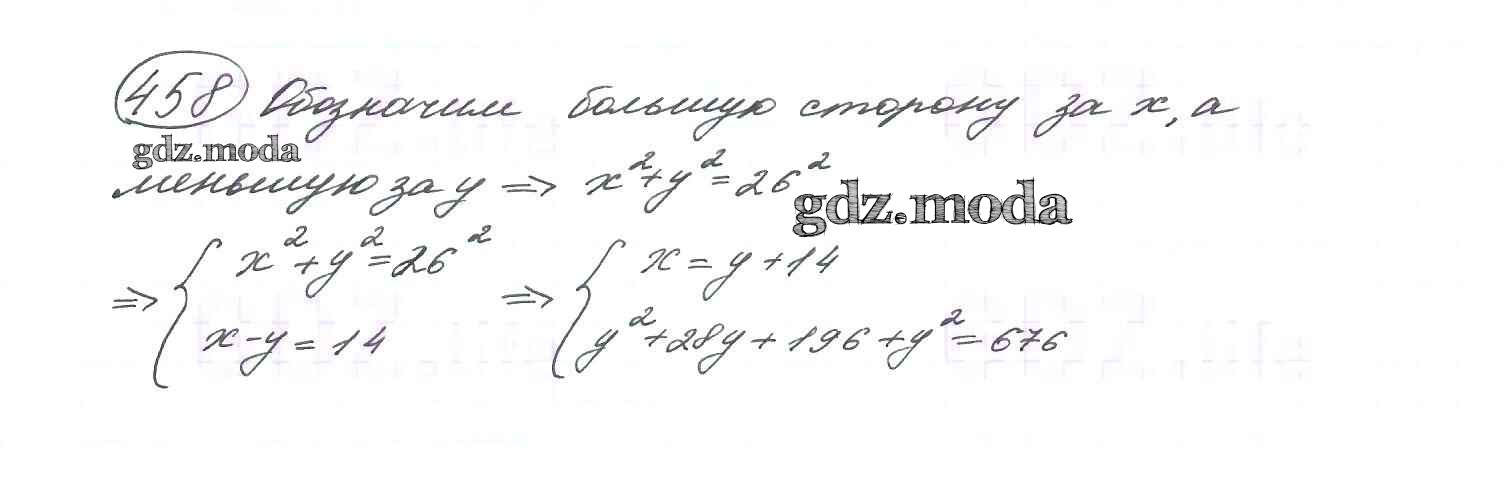 458 Обозначим большую сторону за x, а
gdz.moda
меньшую за y => x²+y²=26²
gdz.moda
=> { x²+y²=26² => { x=y+14
x-y=14 y²+28y+196+y²=676